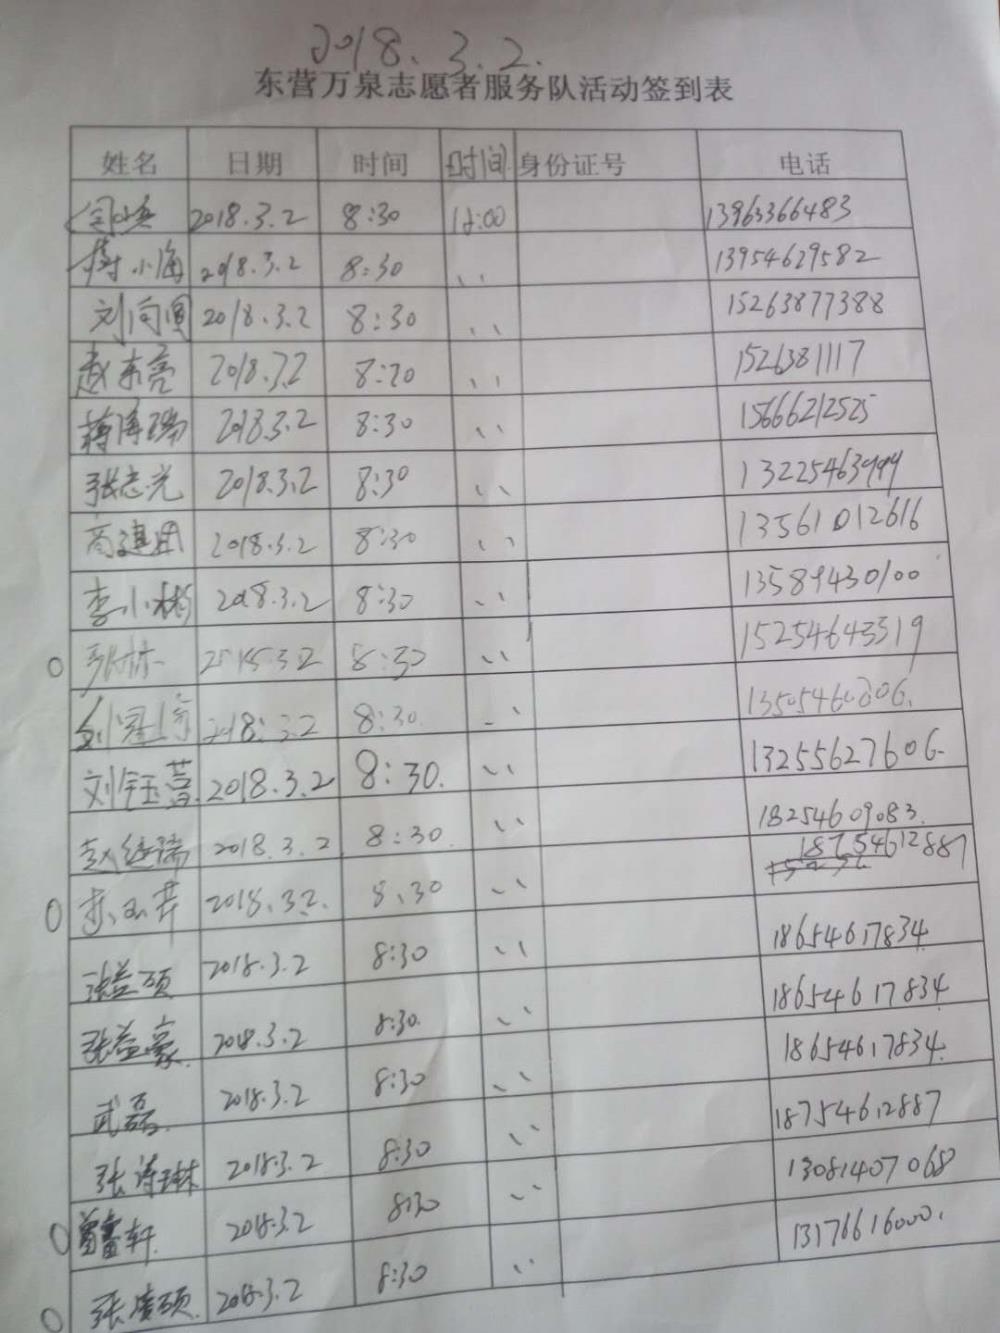 2018.3.2.
东营万泉志愿者服务队活动签到表
姓名 日期 时间 时间 身份证号 电话
2018.3.2 8:30 12:00 13963366483
小海 2018.3.2 8:30 〃 13954629582
刘向国 2018.3.2 8:30 〃 15263877388
赵东亮 2018.3.2 8:20 〃 1526381117
蒋海瑞 2018.3.2 8:30 〃 15666212525
张志光 2018.3.2 8:30 〃 13225463999
高建团 2018.3.2 8:30 〃 13561012616
李小彬 2018.3.2 8:30 〃 13589430100
O 张林 8:30 〃 15254643319
刘冠 2018.3.2 8:30. 〃 13505460806.
刘钰萱 2018.3.2 8:30. 〃 13255627606.
赵继瑞 2018.3.2 8:30 〃 18254609083.
O 2018.3.2. 8:30 〃 18754612887
张益硕 2018.3.2 8:30 〃 18654617834
张益豪 2018.3.2 8:30. 〃 18654617834
武磊. 2018.3.2 8:30 〃 18654617834.
张涛琳 2018.3.2 8:30 〃 18754612887
O 轩 2018.3.2 8:30 〃 13081407068
O 张虔硕. 2018.3.2 8:30 〃 13176616000.